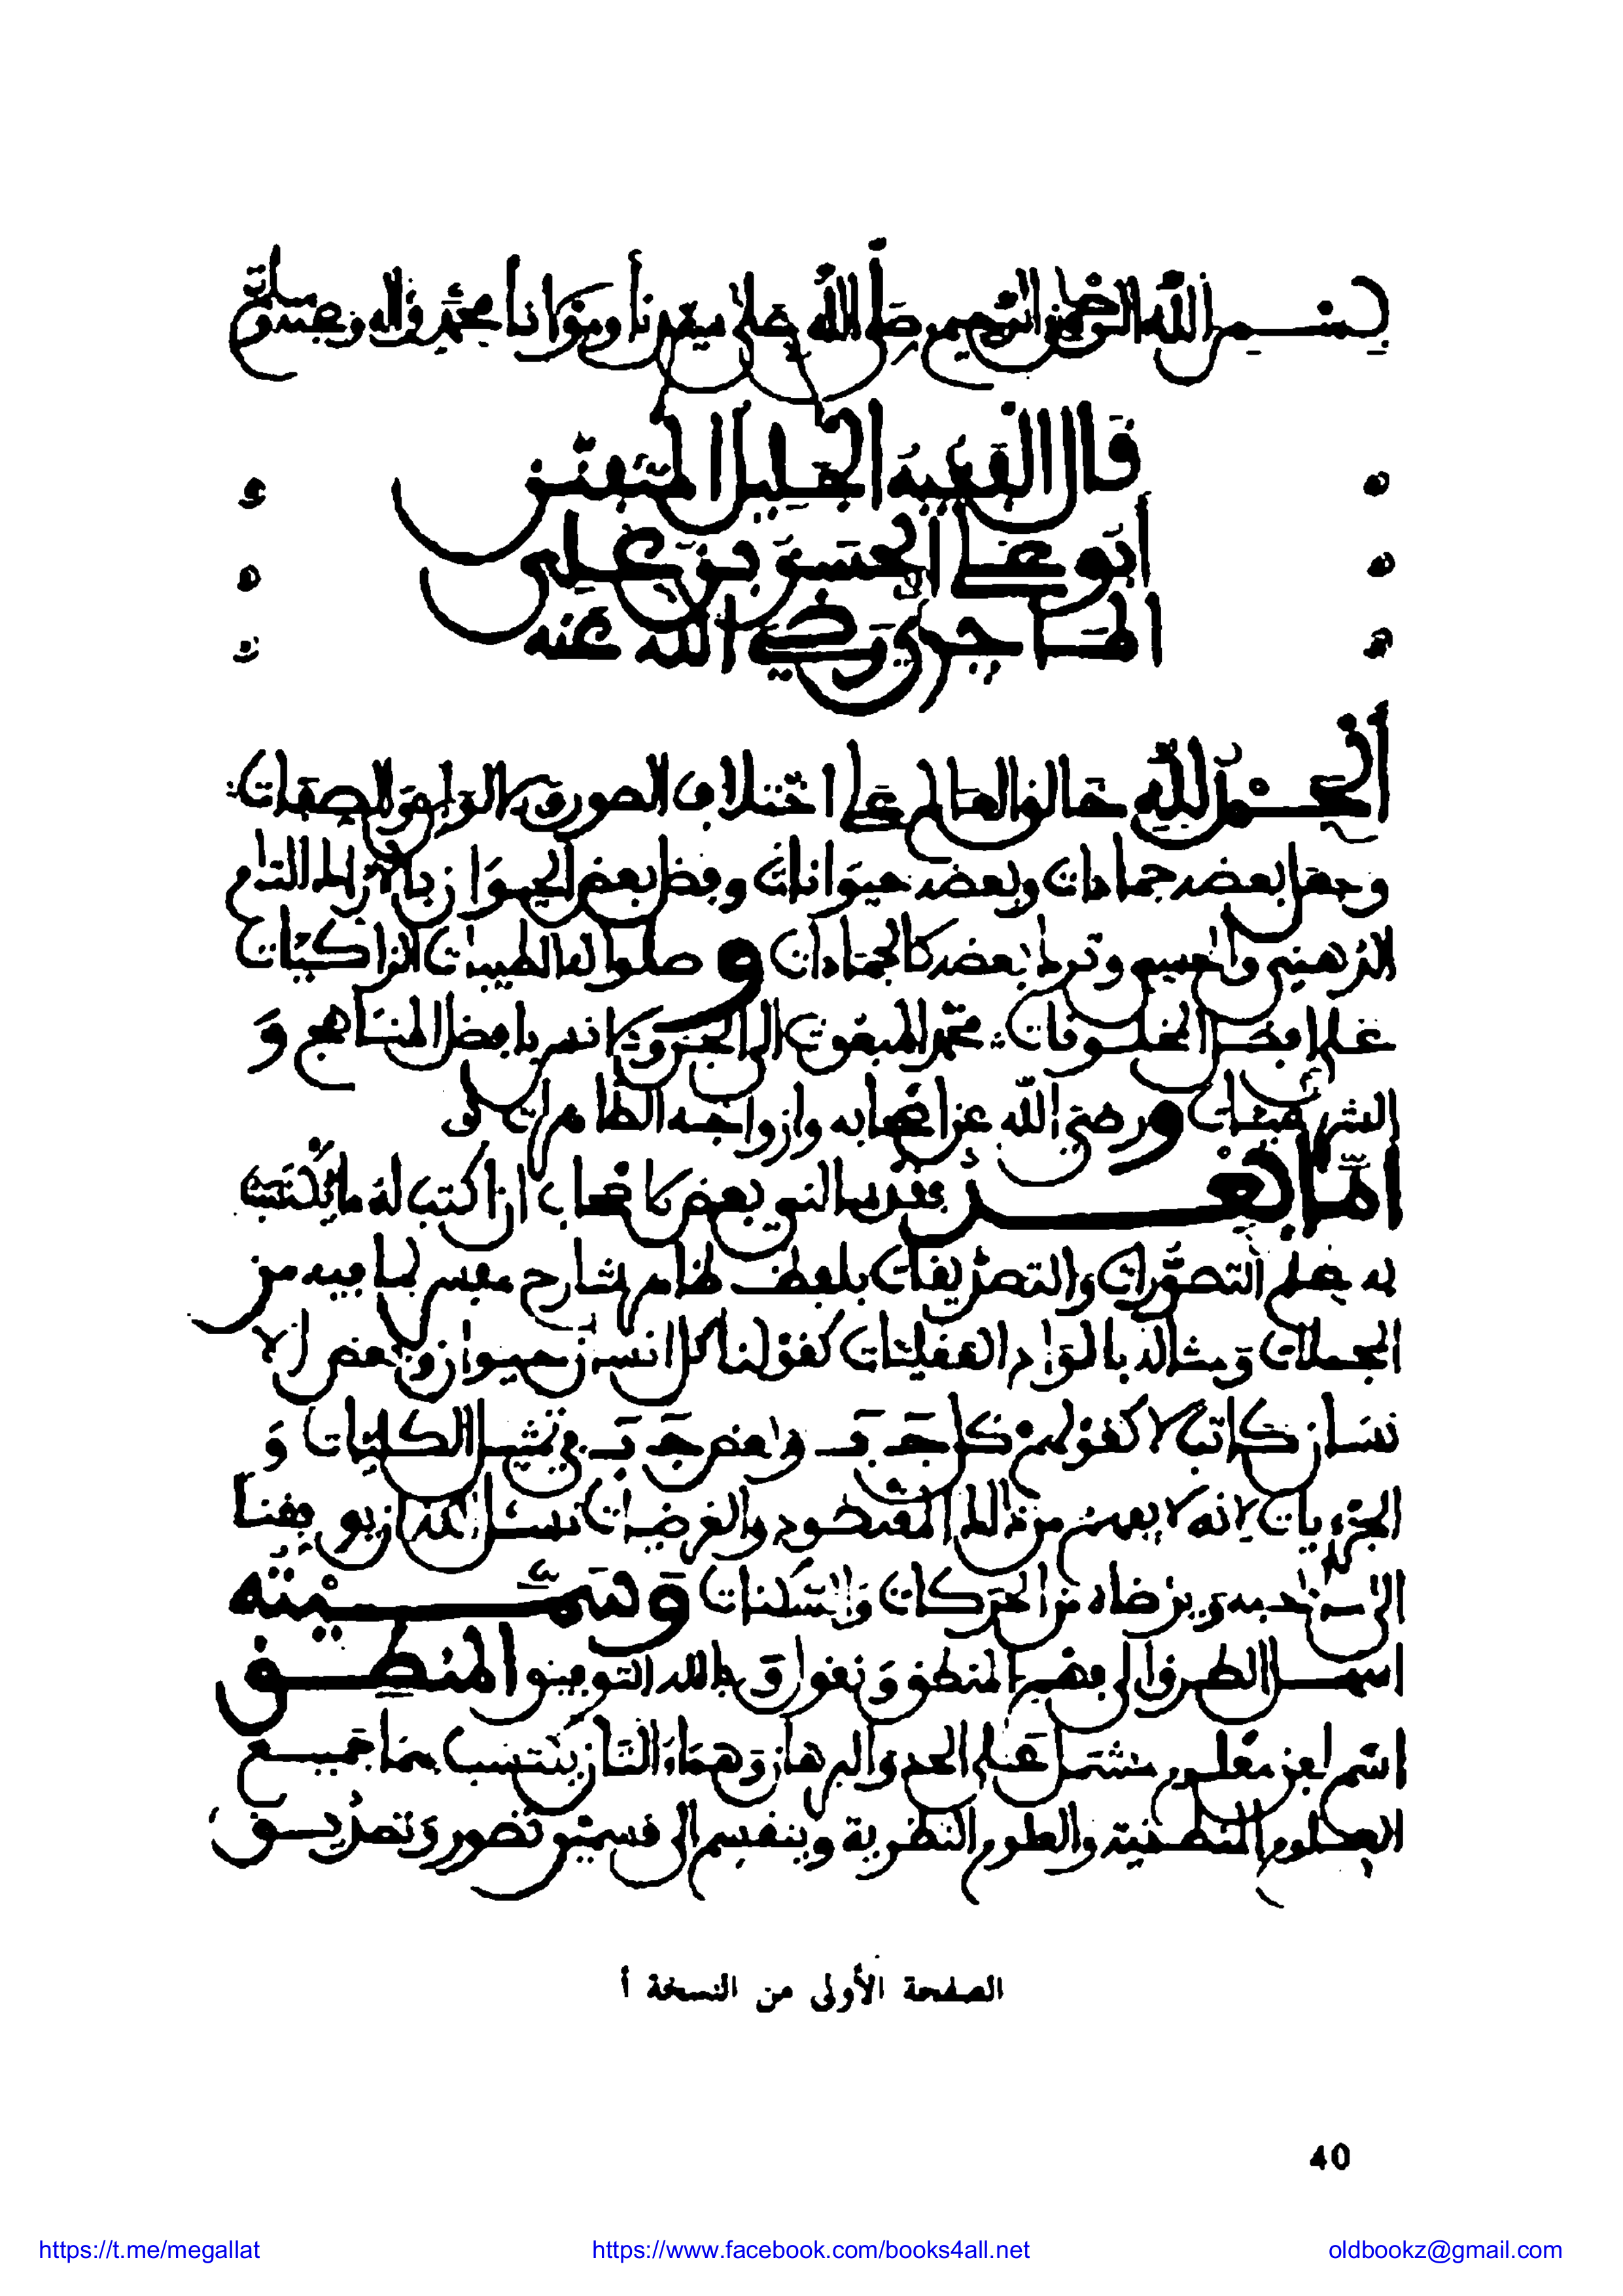 بسم الله الرحمن الرحيم صلى الله على سيدنا ومولانا محمد وآله وصحبه
قال الفقيه الجليل المتفنن
أبو علي الحسن بن علي
الماجري رضي الله عنه
الحمد لله خالق العالم على اختلاف الصور والصفات
وجعل بعضه جمادات وبعضه حيوانات وفضل بعض الحيوان التام
الذهني والحسي وترك بعضه كالجمادات وصلوات الله الطيبات الزاكيات
على أفضل المخلوقات محمد المبعوث إلى الجن والانس بافضل المناهج و
ورضي الله عن أصحابه وازواجه الطاهرات
أما بعد بعض الاصحاب ان اكتب له ما يكتسب
به علم التصورات والتصديقات بلفظ ظاهر شارح مفسر لما فيه من
المجملات ومثاله بالمواد العقليات كقولنا كل انسان حيوان وبعض الا
نسان كاتب لا كقولهم كل ج ب وبعض ج ب في تمثيل الكليات و
الجزءيات لانه لا يفهم من ذلك المقصود والغرضيات نسئل الله ان يوفقنا
الى ما يحبه ويرضاه من الحركات والسكنات وسميته
اسهل الطرق إلى فهم المنطق ونقول وبالله التوفيق المنطق
اسم لفن معلوم مشتمل على الحد والبرهان وهما اللذان يكتسب بهما جميع
العلوم والعلوم النظرية وينقسم إلى قسمين تصور وتصديق
الصفحة الأولى من النسخة أ
40
https://t.me/megallat https://www.facebook.com/books4all.net oldbookz@gmail.com